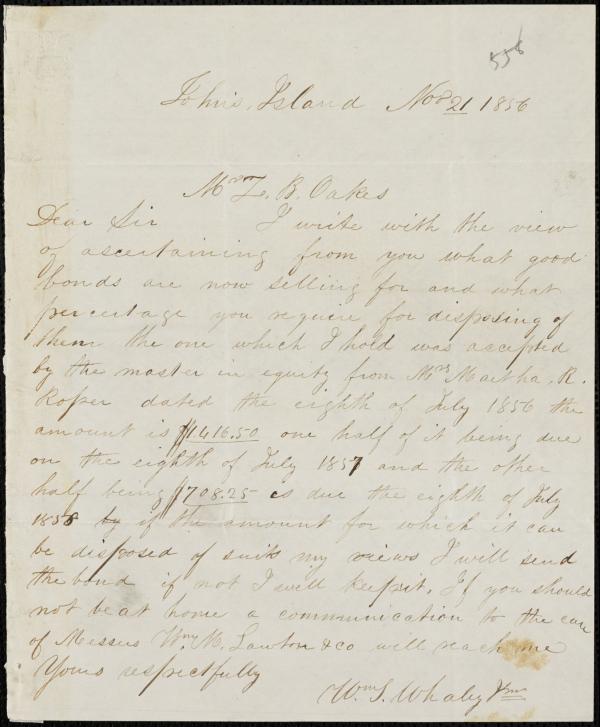 556
John's Island Nov 21 1856
Mr Z. B. Oakes
Dear Sir I write with the view
of ascertaining from you what good
bonds are now selling for and what
percentage you require for disposing of
them the one which I hold was accepted
by the master in equity from Mrs Martha. R.
Roper dated the eighth of July 1856 the
amount is $1416.50 one half of it being due
on the eighth of July 1857 and the other
half being $708.25 is due the eighth of July
1858 by if the amount for which it can
be disposed of suits my views I will send
the bond if not I will keep it. If you should
not be at home a communication to the care
of Messers Wm M. Lawton & co will reach me
Yours respectfully
Wm S. Whaley